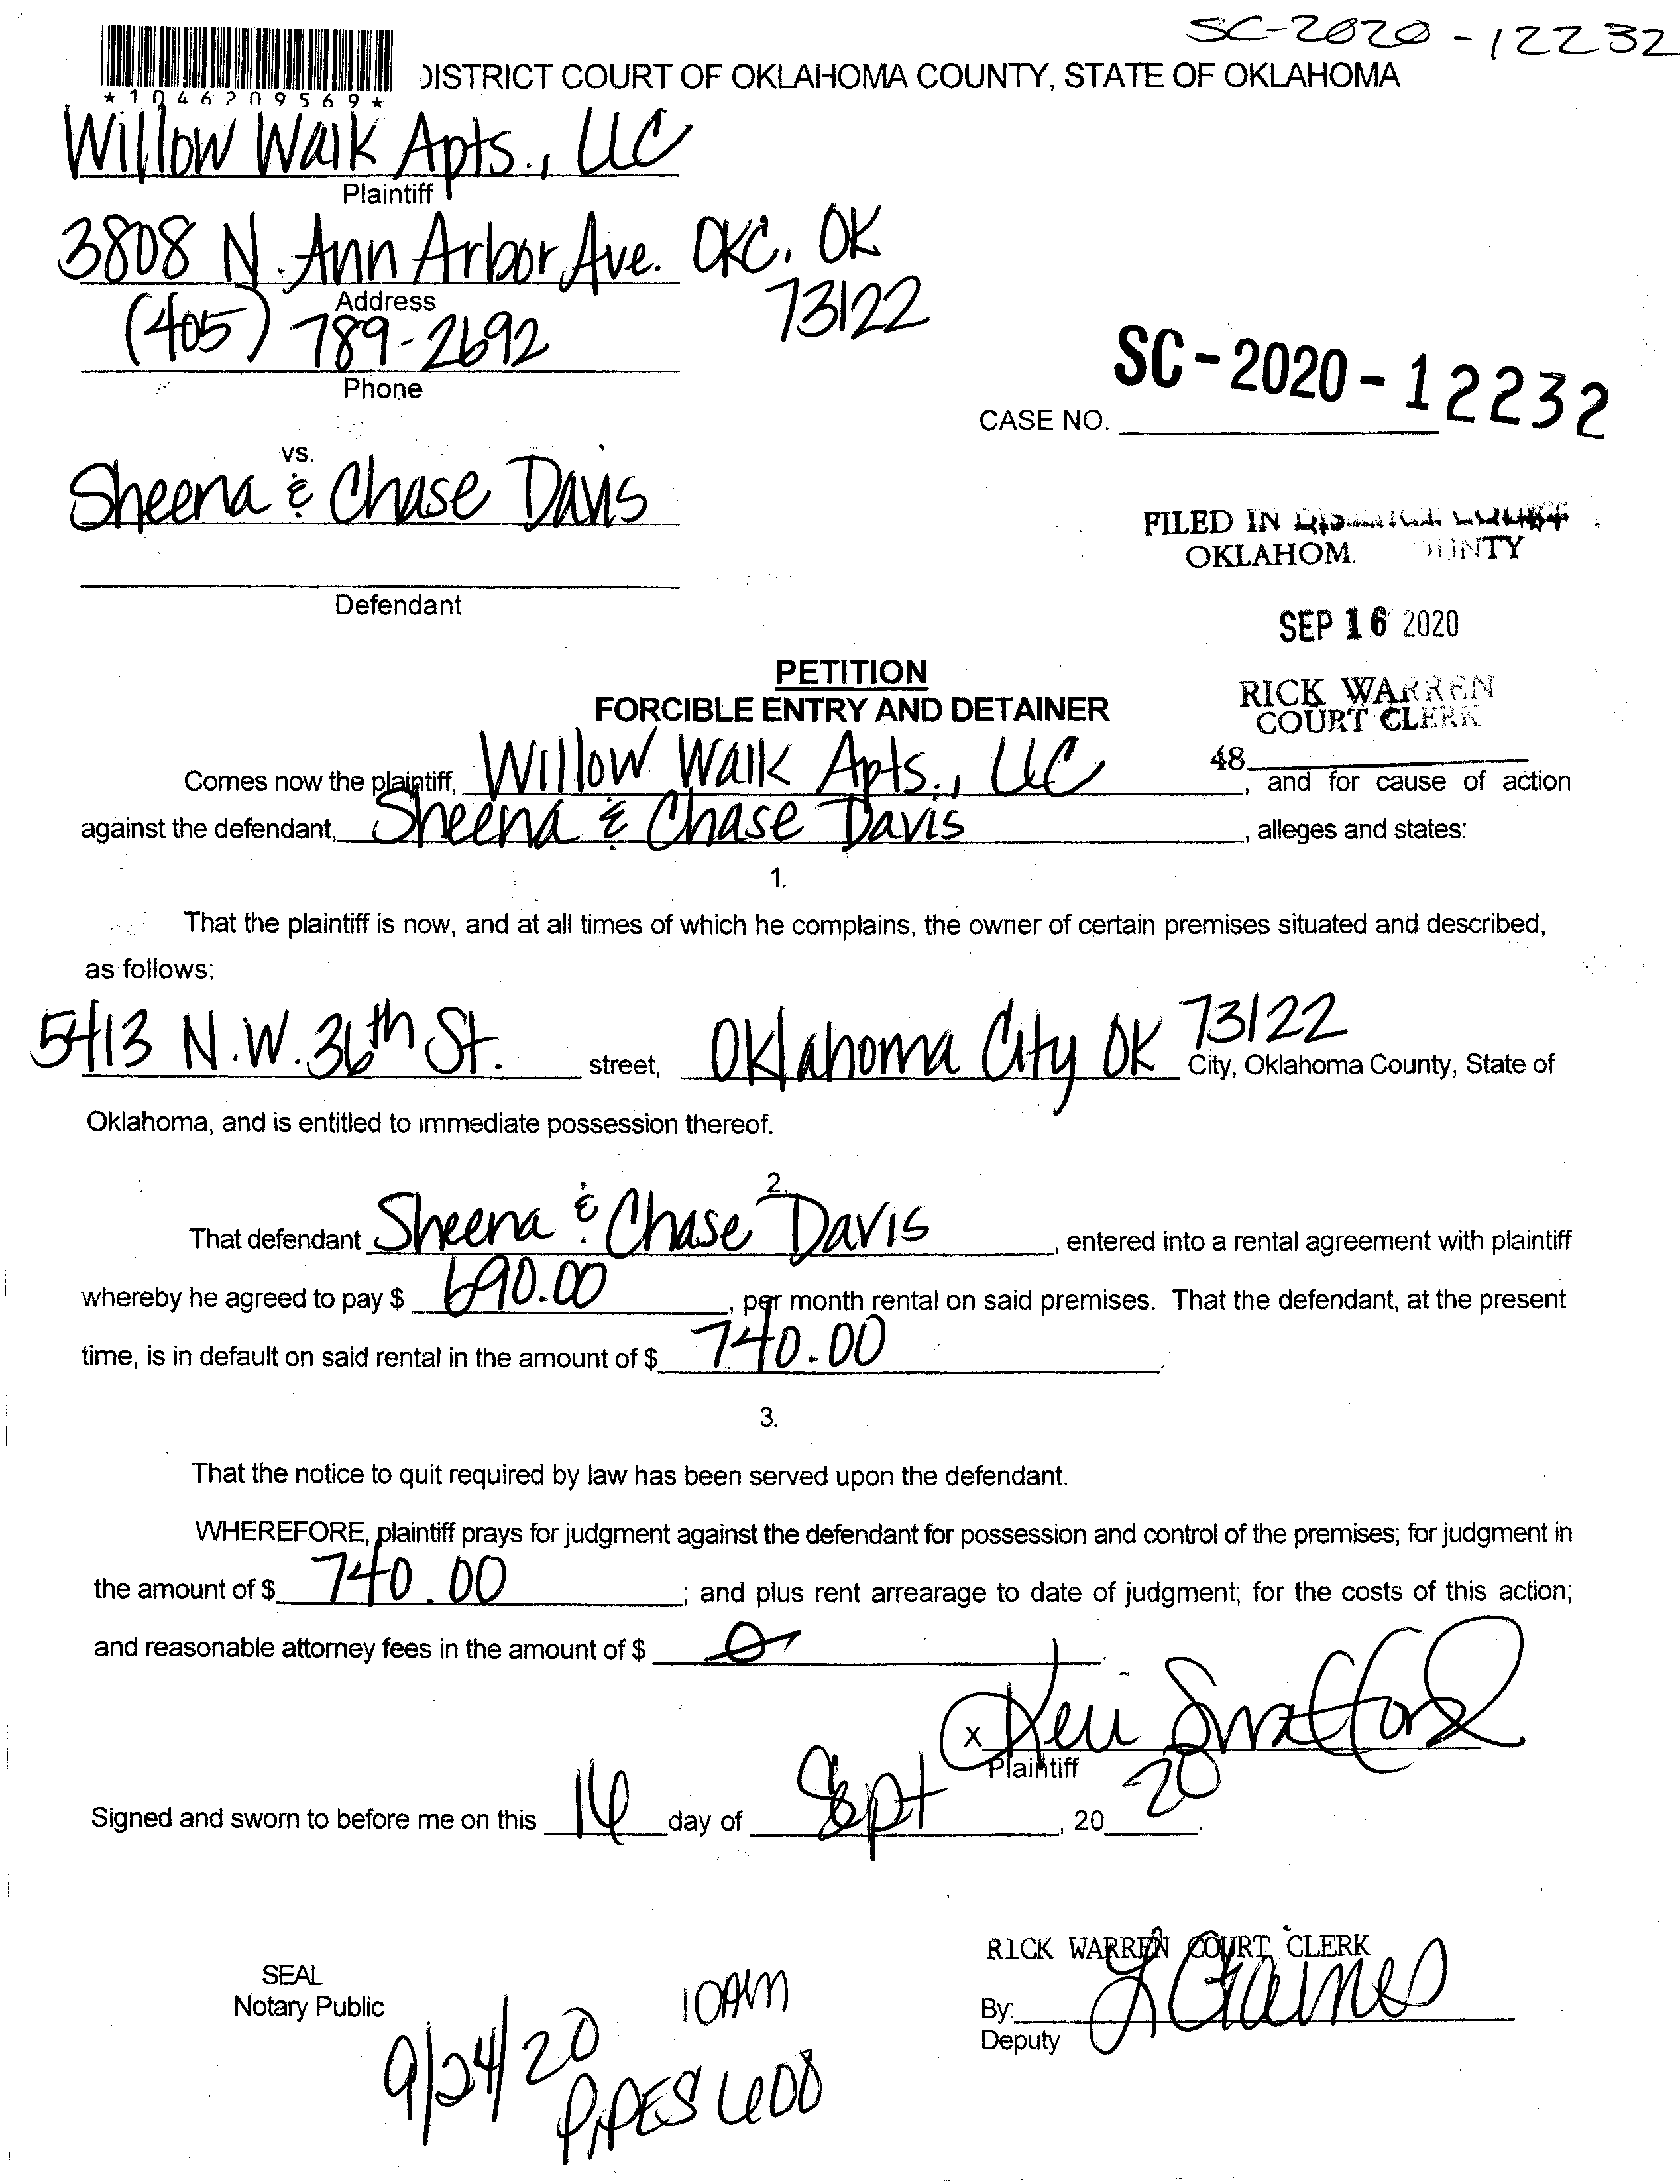 SC-2020-12232
DISTRICT COURT OF OKLAHOMA COUNTY, STATE OF OKLAHOMA
*1046209569*
Willow Walk Apts., LLC
Plaintiff
3808 N. Ann Arbor Ave. OKC, OK
73122
Address
(405) 789-2692
Phone
SC-2020-12232
CASE NO.
vs.
Sheena & Chase Davis
Defendant
FILED IN DISTRICT COURT
OKLAHOM. OUNTY
SEP 16 2020
RICK WARREN
COURT CLERK
48
PETITION
FORCIBLE ENTRY AND DETAINER
Comes now the plaintiff, Willow Walk Apts., LLC, and for cause of action
against the defendant, Sheena & Chase Davis, alleges and states:
1.
That the plaintiff is now, and at all times of which he complains, the owner of certain premises situated and described,
as follows:
5413 N.W. 36th St. street, Oklahoma City OK 73122 City, Oklahoma County, State of
Oklahoma, and is entitled to immediate possession thereof.
2.
That defendant Sheena & Chase Davis, entered into a rental agreement with plaintiff
whereby he agreed to pay $ 690.00, per month rental on said premises. That the defendant, at the present
time, is in default on said rental in the amount of $ 740.00.
3.
That the notice to quit required by law has been served upon the defendant.
WHEREFORE, plaintiff prays for judgment against the defendant for possession and control of the premises; for judgment in
the amount of $ 740.00; and plus rent arrearage to date of judgment; for the costs of this action;
and reasonable attorney fees in the amount of $ 0.
x
Plaintiff
Signed and sworn to before me on this 16 day of Sept, 20 20.
RICK WARREN COURT CLERK
SEAL
Notary Public
By:
Deputy
9/24/20 10AM